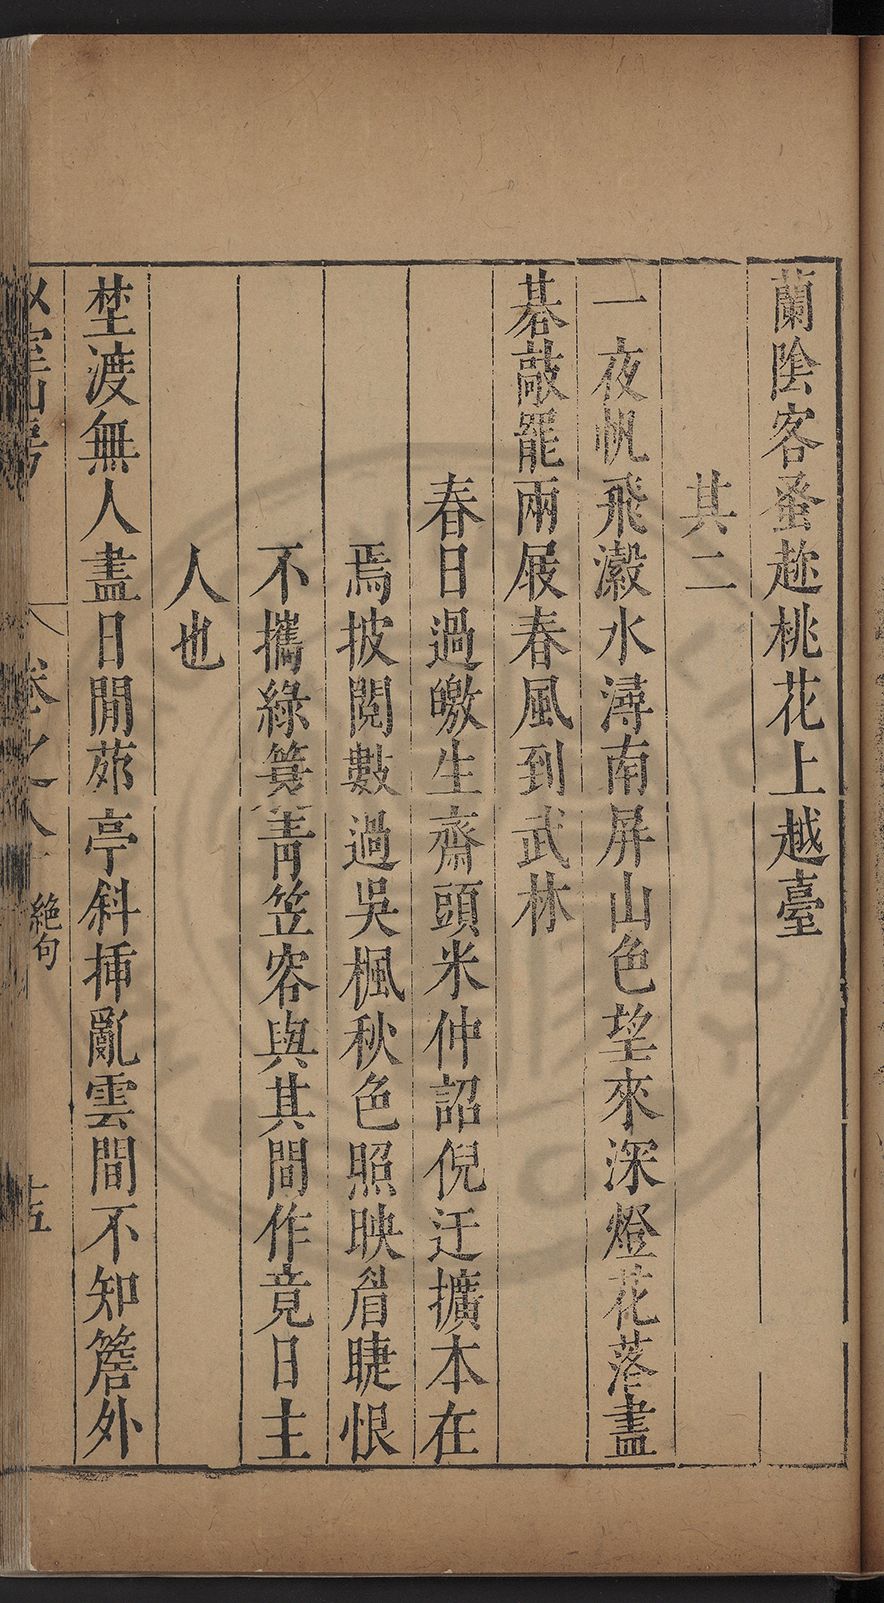 蘭陰客蚤趂桃花上越臺
其二
一夜帆飛瀔水潯南屏山色望來深燈花落盡
碁敲罷兩屐春風到武林
春日過皦生齋頭米仲詔倪迂擴本在
焉披閱數過吳楓秋色照映眉睫恨
不攜綠簑靑笠容與其間作竟日主
人也
埜渡無人盡日閒茆亭斜揷亂雲間不知簷外
山房
卷之八
絕句
十五